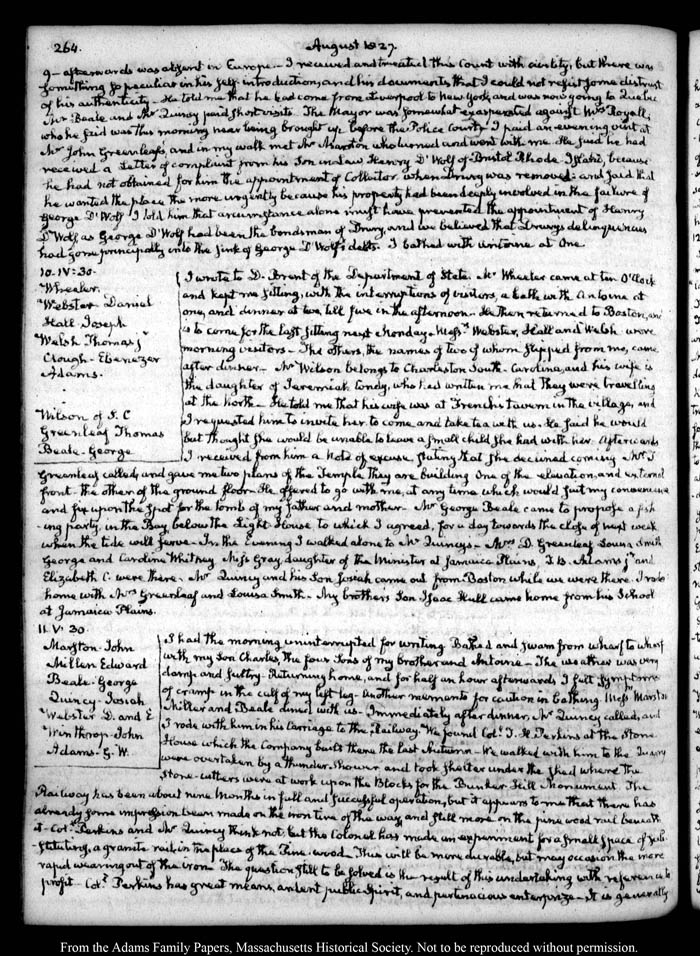 264.
August 1827.
9 - afterwards was absent in Europe - I received and treated this Count with civility, but there was
something so peculiar in his self introduction, and his documents that I could not resist some distrust
of his authenticity - He told me that he had come from Liverpool to New York, and was now going to Quebec
Mr Beale and Mr Quincy paid short visits. The Mayor was somewhat exasperated against Mrs Royall,
who he said was this morning near being brought up before the Police Court. I paid an evening visit at
Mr John Greenleaf's, and in my walk met Mr Marston who turned and went with me. He said he had
received a Letter of complaint from his Son in Law Henry D'Wolf of Bristol Rhode Island, because
he had not obtained for him the appointment of Collector when Drury was removed: and said that
he wanted the place the more urgently because his property had been deeply involved in the failure of
George D'Wolf I told him that circumstance alone must have prevented the appointment of Henry
D'Wolf, as George D'Wolf had been the bondsman of Drury, and we believed that Drury's delinquencies
had gone principally into the sink of George D'Wolf's debts. I bathed with Antoine at One
10. IV: 30.
Wheeler.
Webster Daniel
Hall Joseph
Welsh Thomas jr
Clough - Ebenezer
Adams.
Wilson of S. C
Greenleaf Thomas
Beale - George
I wrote to D. Brent of the Department of State. Mr Wheeler came at ten O'Clock
and kept me sitting, with the interruptions of visitors, a bathe with Antoine at
one, and dinner at two, till five in the afternoon. He then returned to Boston, and
is to come for the last sitting next Monday. Messrs Webster, Hall and Welsh were
morning visitors - The others, the names of two of whom slipped from me, came
after dinner - Mr Wilson belongs to Charleston South-Carolina, and his wife is
the daughter of Jeremiah Condy, who had written me that they were travelling
at the North - He told me that his wife was at French's tavern in the village, and
I requested him to invite her to come and take tea with us. He said he would
but thought she would be unable to leave a small child she had with her. Afterwards
I received from him a Note of excuse stating that she declined coming Mr T
Greenleaf called, and gave me two plans of the Temple they are building One of the elevation, and external
front - the other of the ground floor - He offered to go with me, at any time which would suit my convenience
and fix upon the spot for the tomb of my father and mother - Mr George Beale came to propose a fish
-ing party, in the Bay, below the Light House to which I agreed, for a day towards the close of next week
when the tide will serve - In the Evening I walked alone to Mr Quincy's - Mrs D. Greenleaf Louisa Smith
George and Caroline Whitney Miss Gray, daughter of the Minister at Jamaica Plains, T. B. Adams jr and
Elizabeth C. were there. Mr Quincy and his Son Josiah came out from Boston while we were there. I rode
home with Mrs Greenleaf and Louisa Smith - My brother's Son Isaac Hull came home from his School
at Jamaica Plains.
11. V: 30
Marston - John
Miller Edward
Beale - George
Quincy - Josiah
Webster D. and E
Winthrop - John
Adams - G. W.
I had the morning uninterrupted for writing Bathed and swam from wharf to wharf
with my Son Charles, the four Sons of my brother and Antoine - The weather was very
damp and sultry. Returning home, and for half an hour afterwards I felt symptoms
of cramp in the calf of my left leg - Another memento for caution in bathing Messrs Marston
Miller and Beale dined with us. Immediately after dinner, Mr Quincy called, and
I rode with him in his Carriage to the Railway. We found Coll T. H. Perkins at the Stone
House which the Company built there the last Autumn - We walked with him to the Quarry
were overtaken by a thunder-shower and took shelter under the shed where the
stone-cutters were at work upon the Blocks for the Bunker Hill Monument. The
Railway has been about nine Months in full and successful operation, but it appears to me that there has
already some impression been made on the iron tire of the way, and still more on the pine wood rail beneath
it - Coll Perkins and Mr Quincy think not, but the Colonel has made an experiment for a small space of sub-
-stituting, a granite rail in the place of the Pine-wood - This will be more durable, but may occasion the more
rapid wearing out of the iron - The question still to be solved is the result of this undertaking with reference to
profit - Coll Perkins has great means, ardent public spirit, and pertinacious enterprize - It is generally
From the Adams Family Papers, Massachusetts Historical Society. Not to be reproduced without permission.